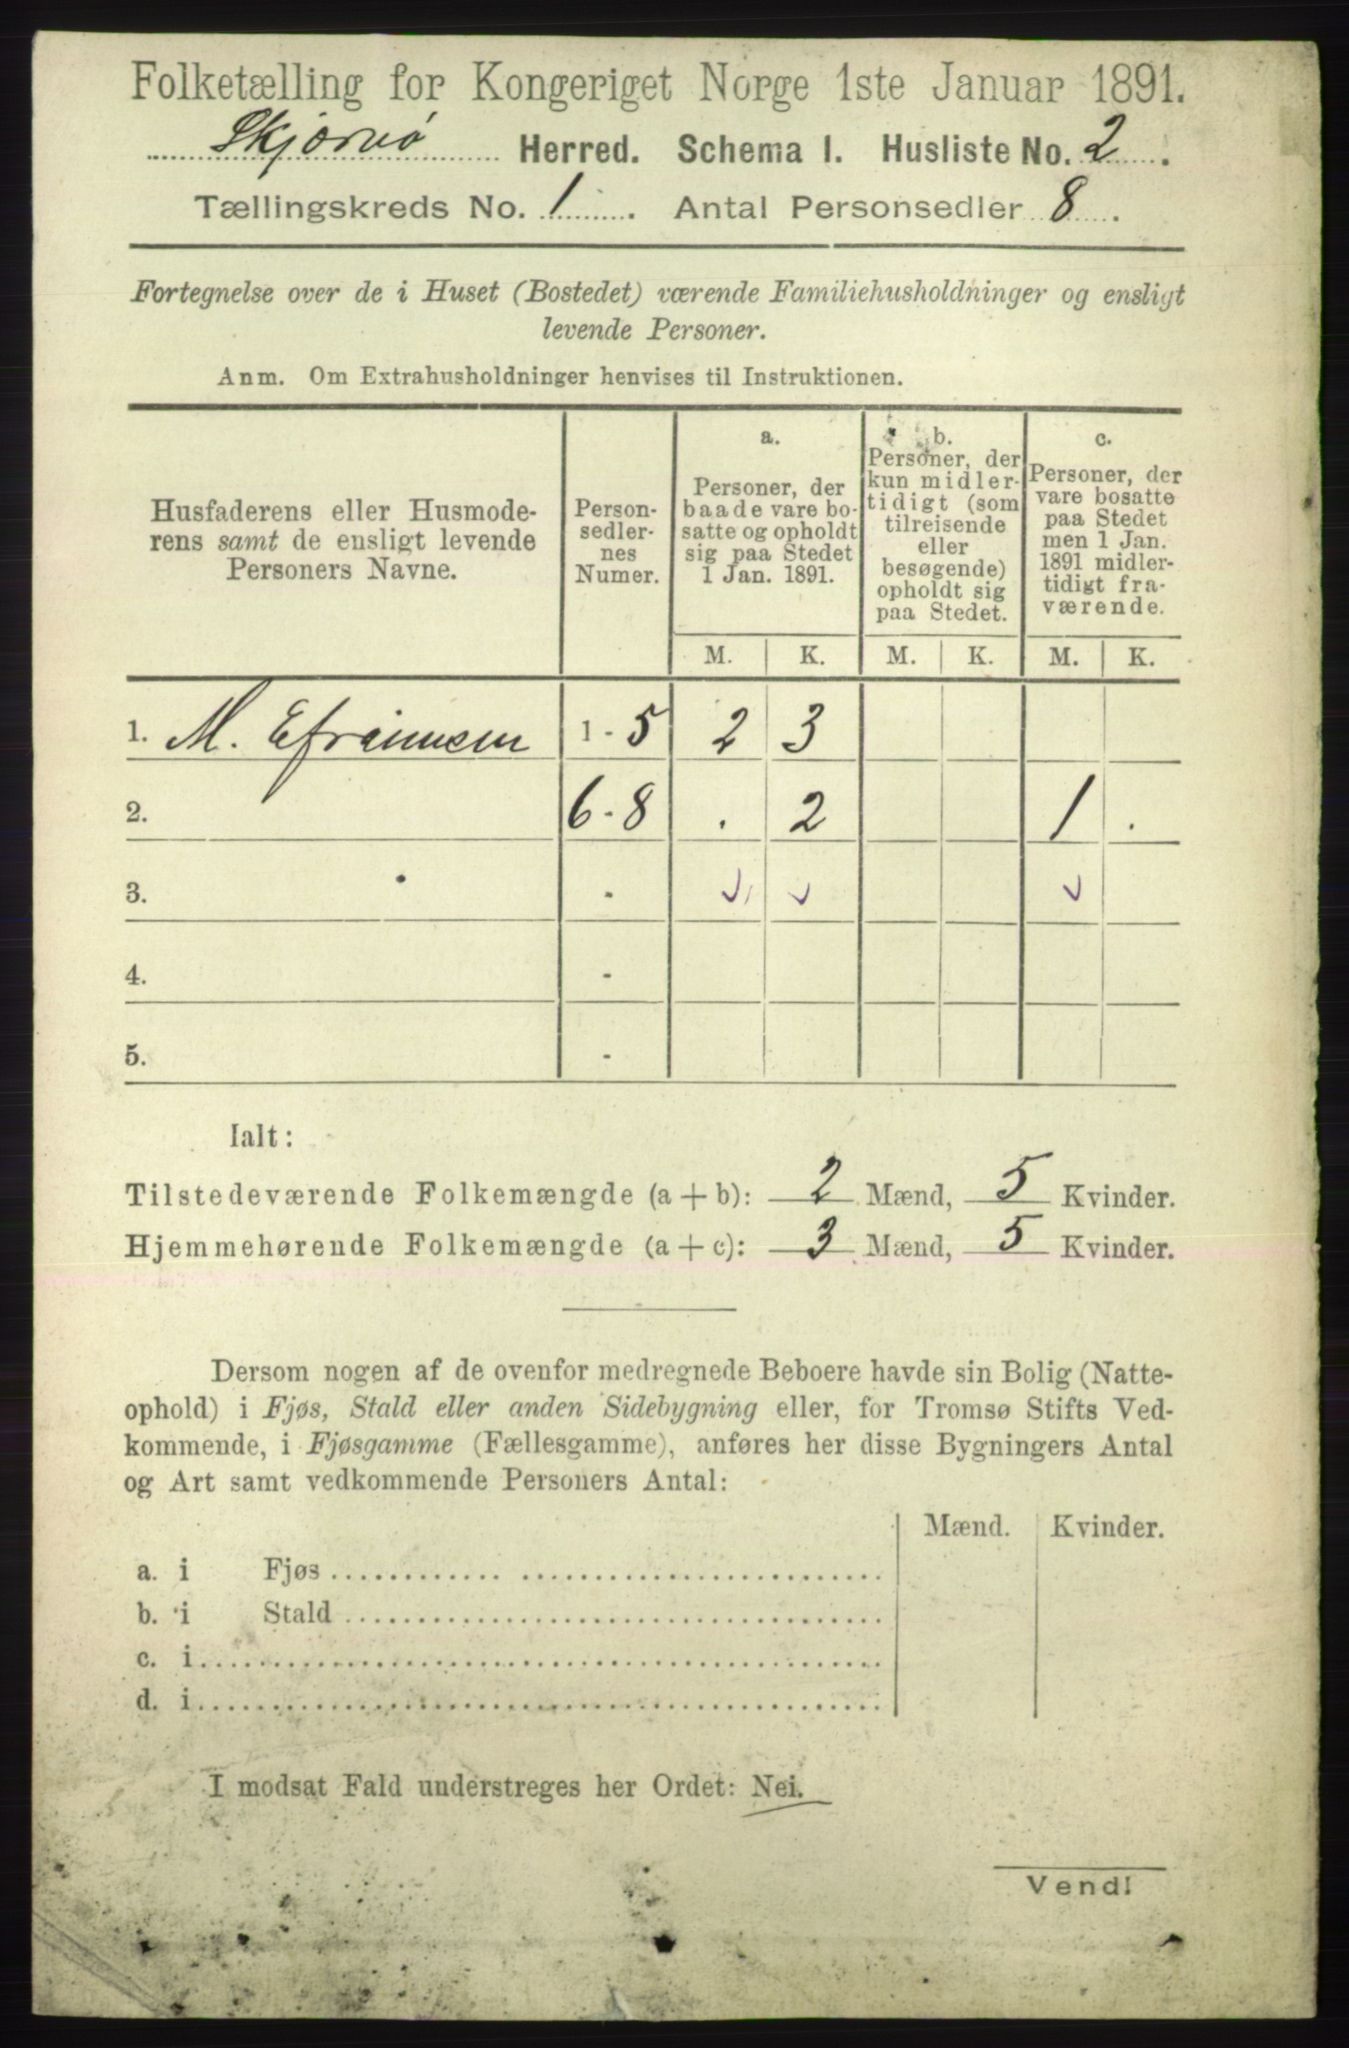 Folketælling for Kongeriget Norge 1ste Januar 1891.
Skjærvø Herred. Schema I. Husliste No. 2.
Tællingskreds No. 1. Antal Personsedler 8.
Fortegnelse over de i Huset (Bostedet) værende Familiehusholdninger og ensligt
levende Personer.
Anm. Om Extrahusholdninger henvises til Instruktionen.
Husfaderens eller Husmode-
rens samt de ensligt levende
Personers Navne.
Person-
sedler-
nes
Numer.
a.
Personer, der
baade vare bo-
satte og opholdt
sig paa Stedet
1 Jan. 1891.
b.
Personer, der
kun midler-
tidigt (som
tilreisende
eller
besøgende)
opholdt sig
paa Stedet.
c.
Personer, der
vare bosatte
paa Stedet
men 1 Jan.
1891 midler-
tidigt fra-
værende.
M. K. M. K. M. K.
1. M. Efraimsen 1 - 5 2 3
2. 6 - 8 . 2 1 .
3. -
4. -
5. -
Ialt:
Tilstedeværende Folkemængde (a + b): 2 Mænd, 5 Kvinder.
Hjemmehørende Folkemængde (a + c): 3 Mænd, 5 Kvinder.
Dersom nogen af de ovenfor medregnede Beboere havde sin Bolig (Natte-
ophold) i Fjøs, Stald eller anden Sidebygning eller, for Tromsø Stifts Ved-
kommende, i Fjøsgamme (Fællesgamme), anføres her disse Bygningers Antal
og Art samt vedkommende Personers Antal:
Mænd. Kvinder.
a. i Fjøs
b. i Stald
c. i
d. i
I modsat Fald understreges her Ordet: Nei.
Vend!